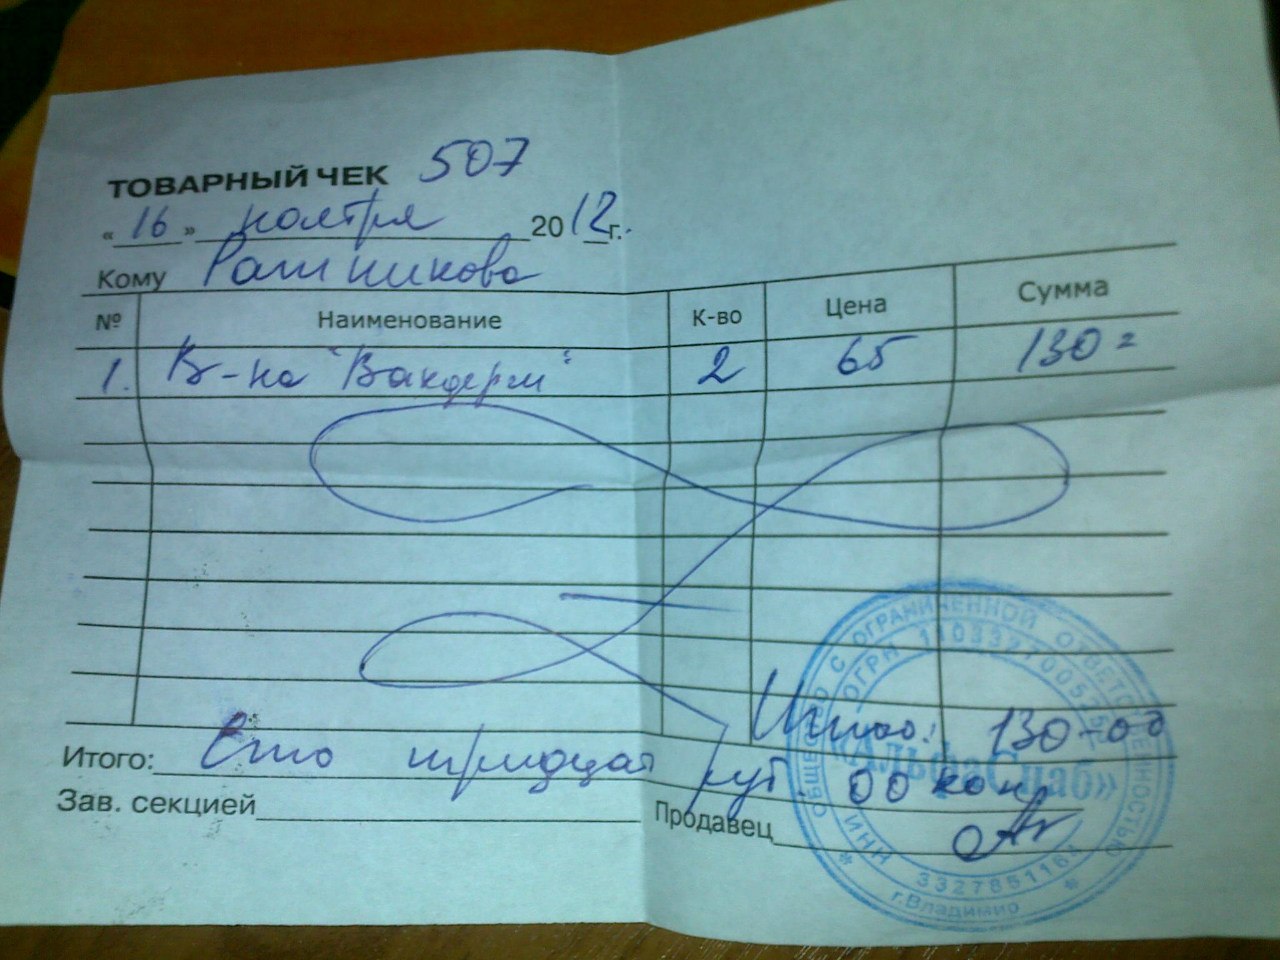 ТОВАРНЫЙ ЧЕК 507
« 16 » ноября 2012 г.
Кому
№ Наименование К-во Цена Сумма
1. В-на "Вакдерм" 2 65 130=
Итого: 130-00
Итого: Сто тридцать руб. 00 коп
Зав. секцией
Продавец
ОБЩЕСТВО С ОГРАНИЧЕННОЙ ОТВЕТСТВЕННОСТЬЮ
ОГРН
«АльфаСнаб»
ИНН
г.Владимир